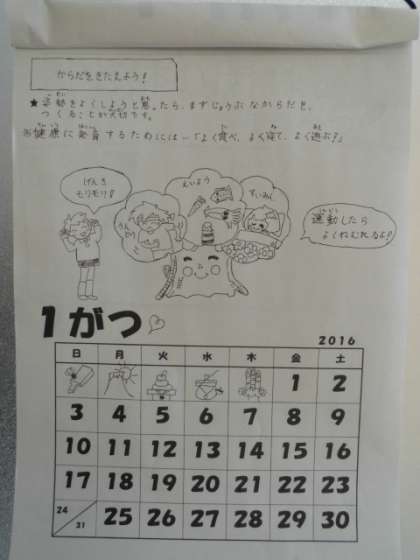 からだをきたえよう!
★姿勢をよくしようと思ったら、まずじょうぶなからだを、
つくることが大切です。
※健康に発育するためには…「よく食べ、よく寝て、よく遊ぶ?」
げんき
モリモリ!
うんどう
えいよう
すいみん
運動したら
よくねむれるよ♪
1がつ
2016
日 月 火 水 木 金 土
1 2
3 4 5 6 7 8 9
10 11 12 13 14 15 16
17 18 19 20 21 22 23
24/31 25 26 27 28 29 30